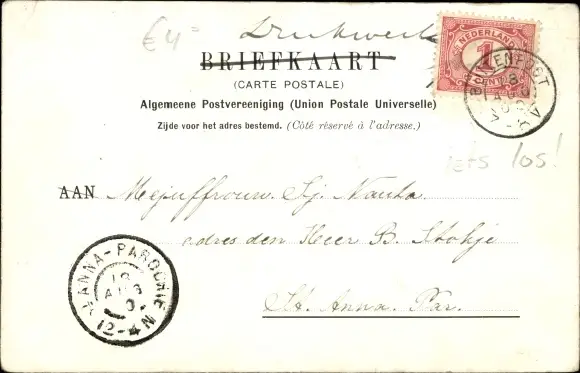 €4=
Drukwerk
BRIEFKAART
(CARTE POSTALE)
Algemeene Postvereeniging (Union Postale Universelle)
Zijde voor het adres bestemd. (Côté réservé à l'adresse.)
NEDERLAND
1
CENT
iets los!
AAN Mejuffrouw. Sj. Nauta
adres den Heer B. Stokje
St. Anna. Par.
ST. ANNA-PAROCHIE
12-4N